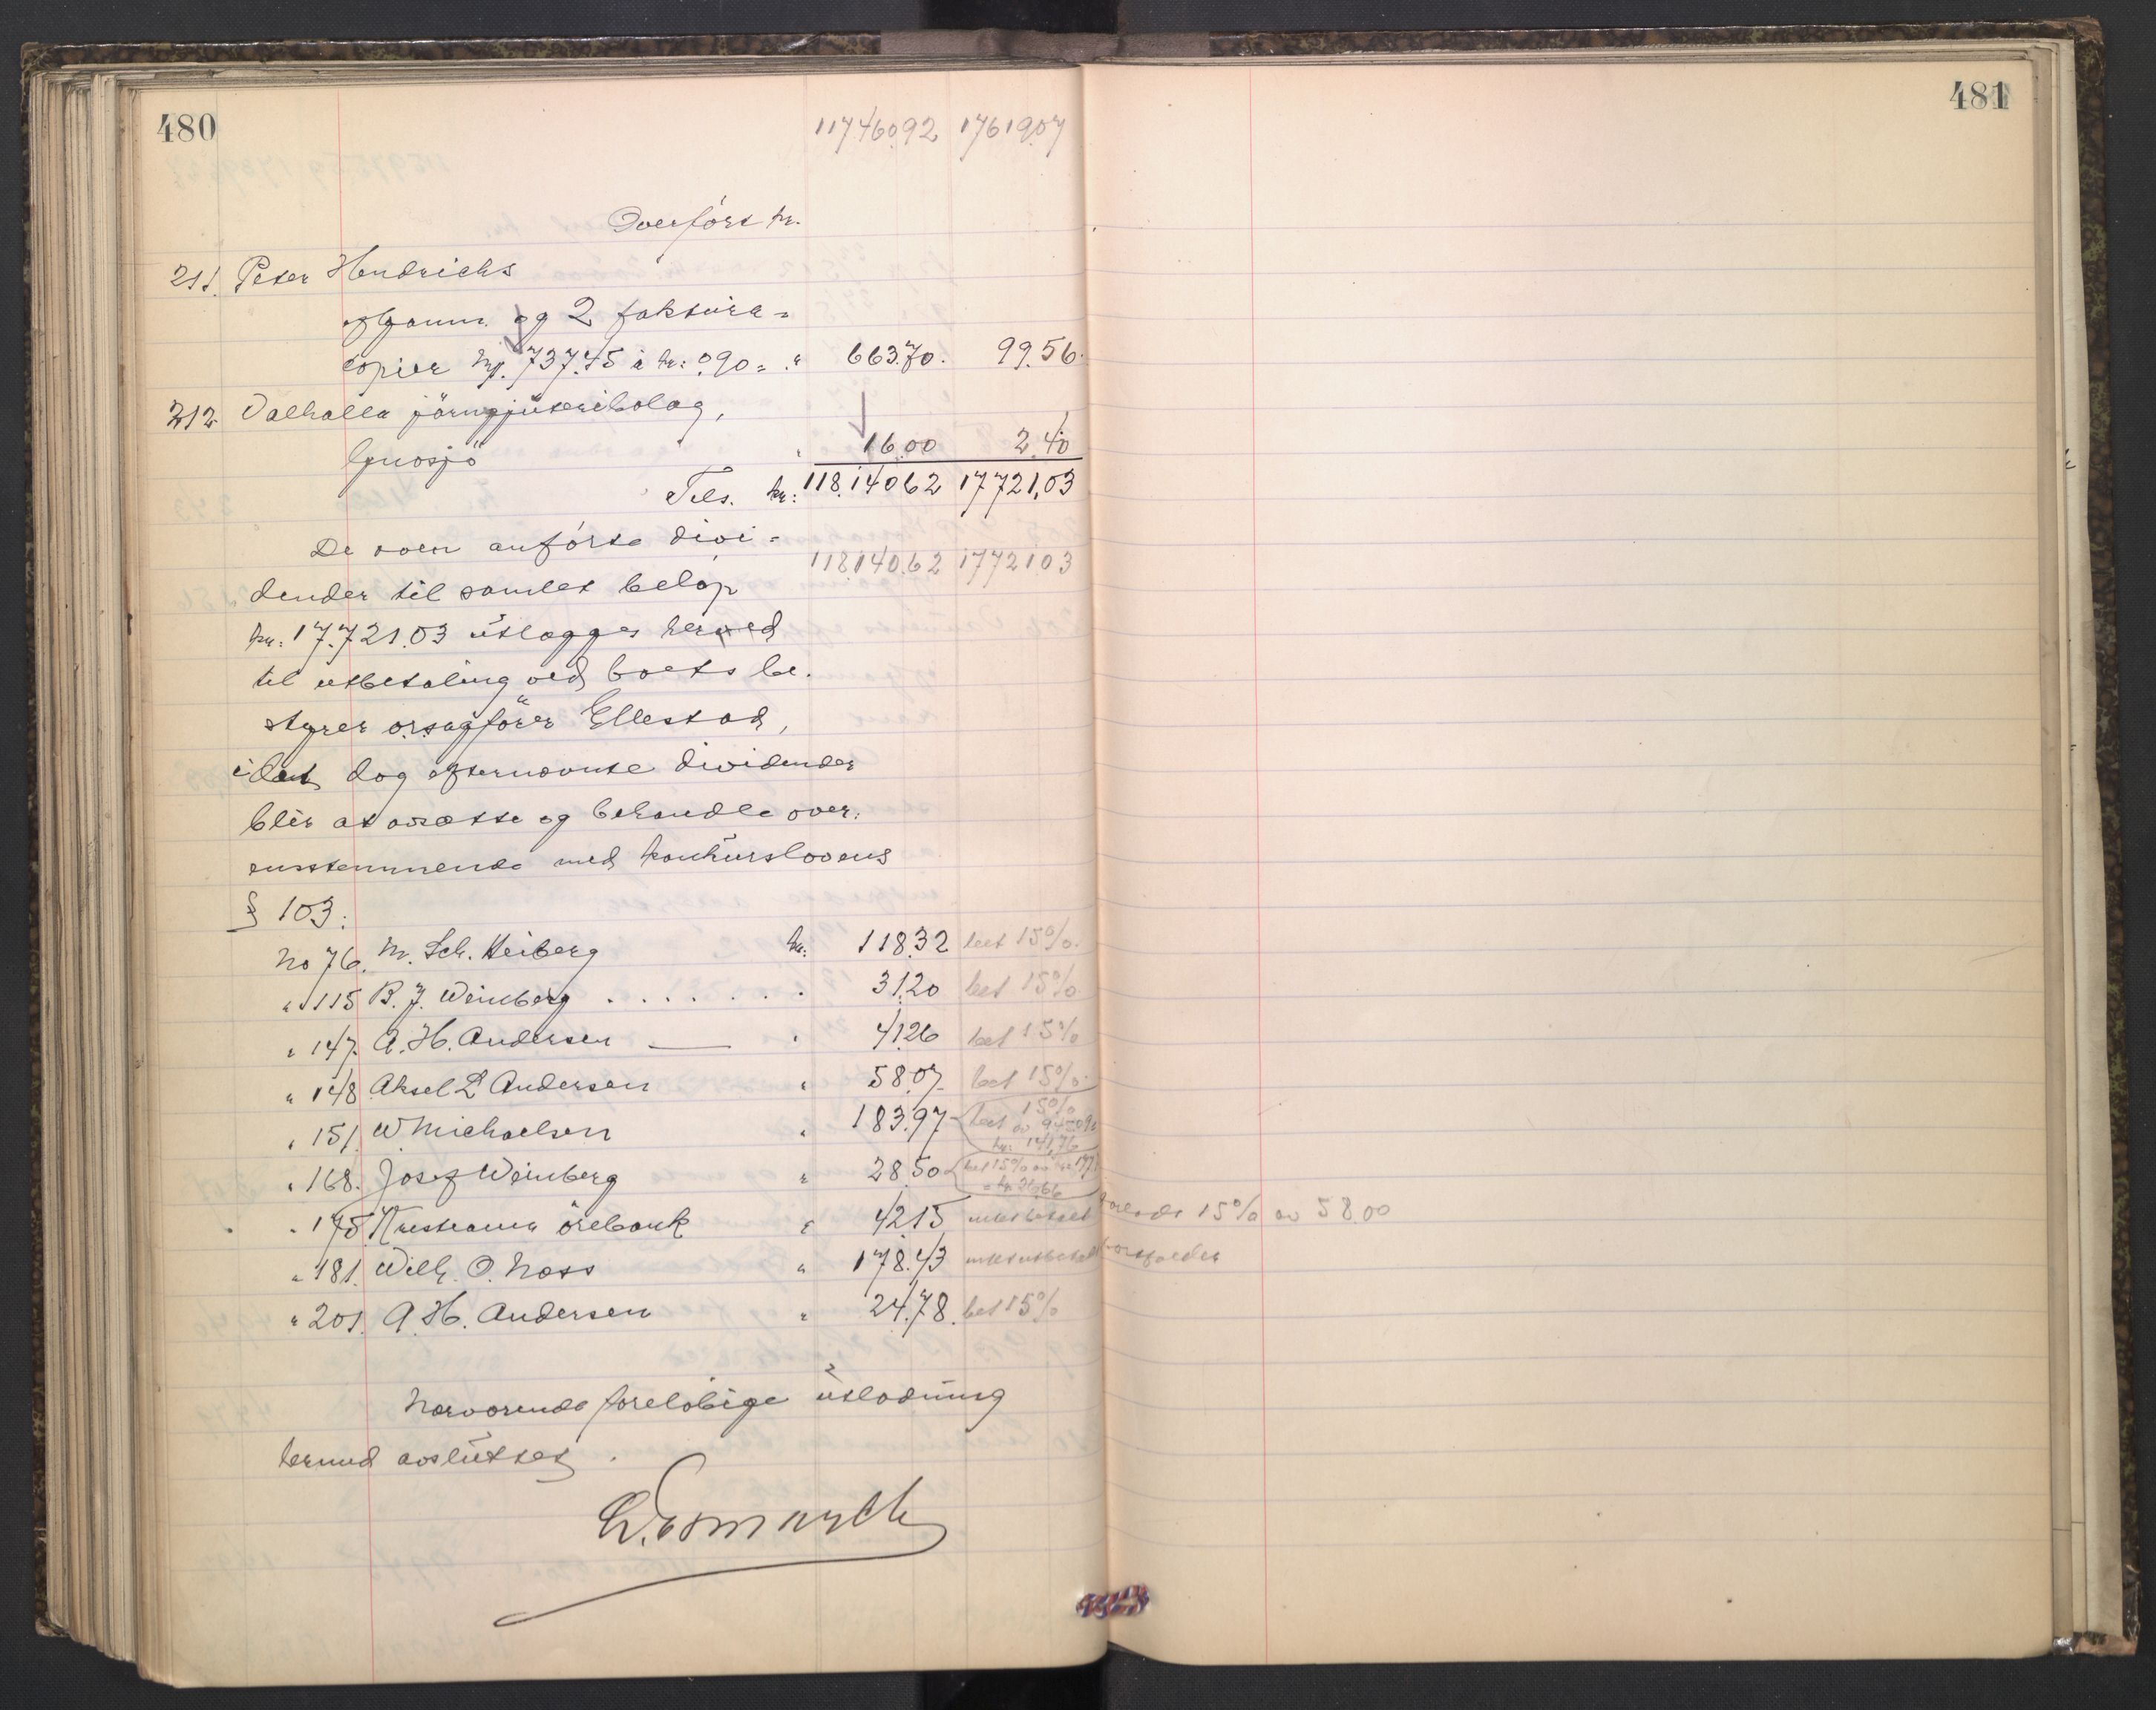 480
117460.92 17619.07
Overført kr.
211. Peter Hendrichs
ifg. og 2 faktura-
copier 737.45 à kr. 0.90 = " 663.70. 99.56.
212 Valhalla jörngjuteribolag,
Gnosjö " 16.00 2.40
Tils. kr: 118.140 62 17721,03
De oven anførte divi-
118140.62 17721 03
dender til samlet beløp
kr: 17.721.03 utlægges herved
til utbetaling ved boets be-
styrer o.r.sagfører Ellestad,
idet dog efternævnte dividender
blir at avsætte og behandle over-
ensstemmende med konkurslovens
§ 103:
No 76. M. Sch. Heiberg kr: 118.32 bet 15%.
" 115 B. J. Weinberg . . . . . . . 31.20 bet 15%
" 147. A. H. Andersen — " 41.26 bet 15%
" 148 Aksel L Andersen " 58.07 bet 15%
" 151. W Michaelsen " 183.97 bet 15% av
kr: 141,76
" 168. Josef Weinberg " 28.50 bet 15% av
= kr. 26,66
" 175. Kristiania örebank " 42.15 ikke betalt 15% av 58.00
" 181. Wilh. O. Næss " 178.43 ikke utbetalt
" 201. A. H. Andersen " 24.78. bet 15%
Nærværende foreløbige utlodning
hermed avsluttet.
481